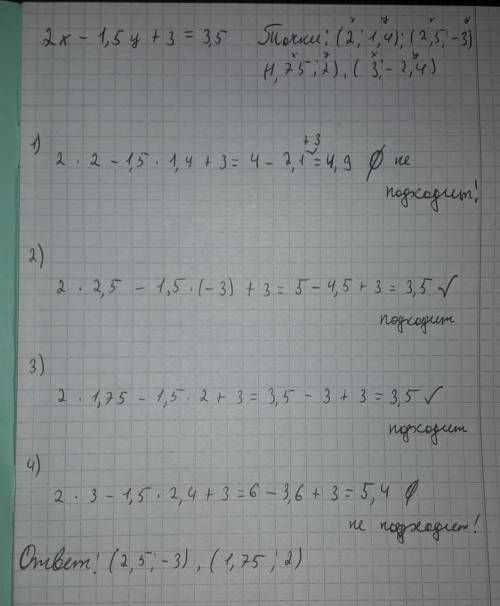 2x - 1,5y + 3 = 3,5 Точки: (2; 1,4); (2,5; -3)
(1,75; 2), (3; -2,4)
1)
2 · 2 - 1,5 · 1,4 + 3 = 4 - 2,1 + 3 = 4,9 ∅ не
подходит!
2)
2 · 2,5 - 1,5 · (-3) + 3 = 5 - 4,5 + 3 = 3,5 ✓
подходит
3)
2 · 1,75 - 1,5 · 2 + 3 = 3,5 - 3 + 3 = 3,5 ✓
подходит
4)
2 · 3 - 1,5 · 2,4 + 3 = 6 - 3,6 + 3 = 5,4 ∅
не подходит!
Ответ: (2,5; -3), (1,75; 2)